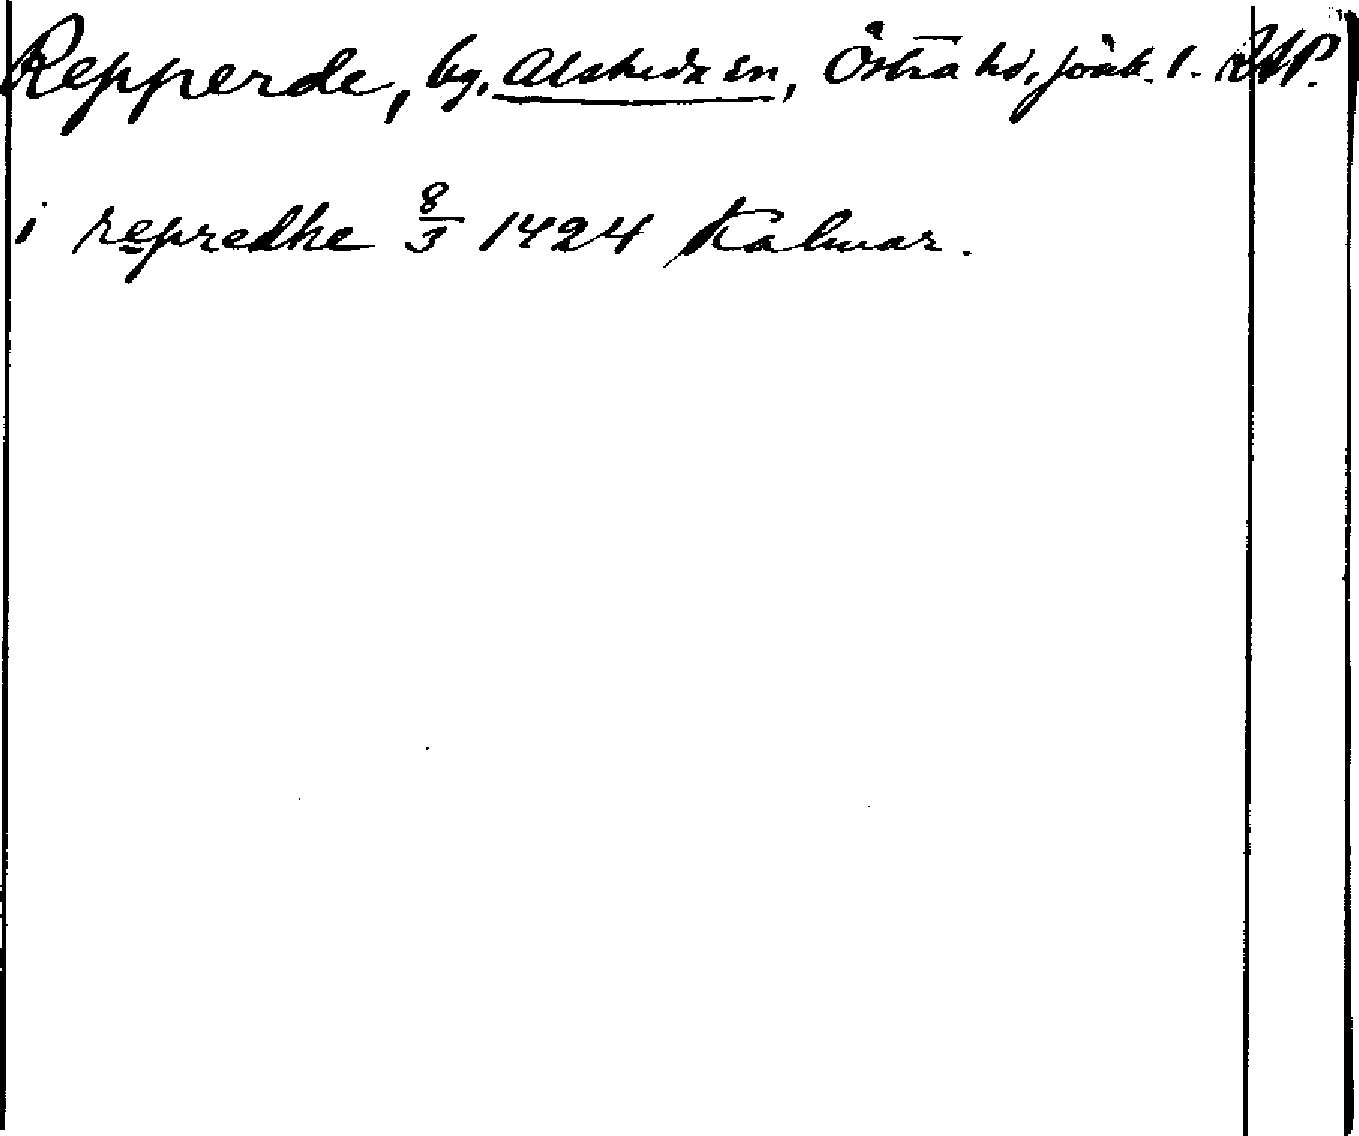 Repperde, by, Alsheda sn, Östra hd, Jönk. l.
i repredhe 8/3 1424 Kalmar.